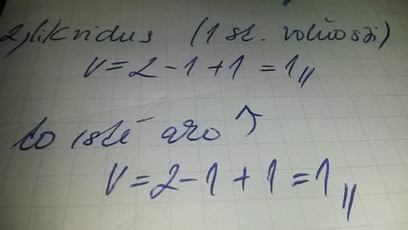 2) likvidus (1 st. voľnosti)
v = 2 - 1 + 1 = 1//
to isté ako ↑
v = 2 - 1 + 1 = 1//